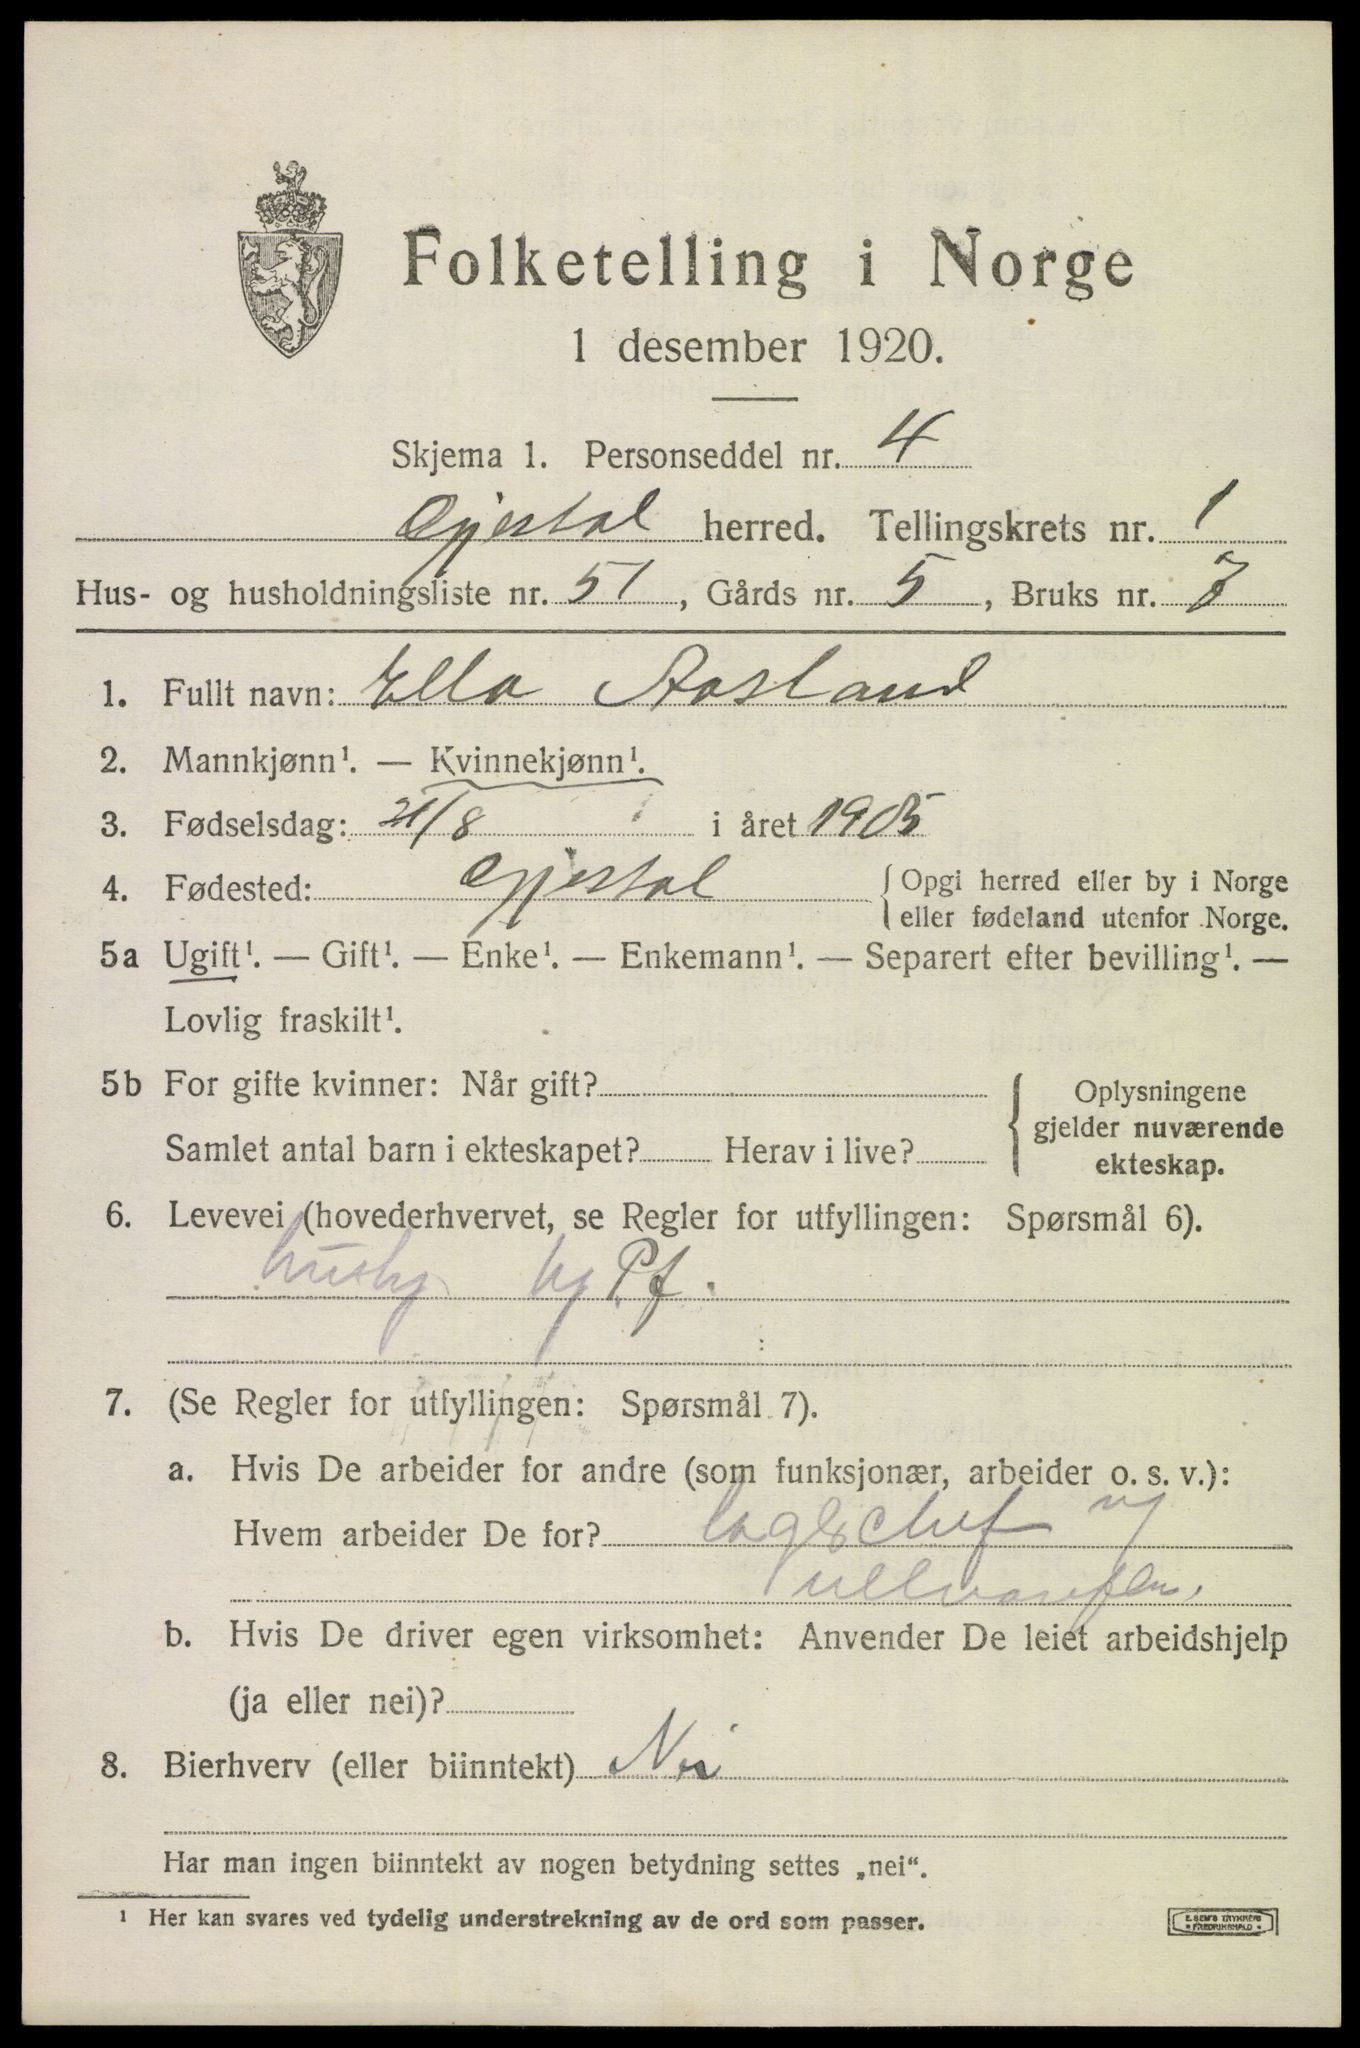 Folketelling i Norge
1 desember 1920.
Skjema 1. Personseddel nr. 4
Gjestal herred. Tellingskrets nr. 1
Hus- og husholdningsliste nr. 51, Gårds nr. 5, Bruks nr. 7
1. Fullt navn: Ella Aasland
2. Mannkjønn¹. — Kvinnekjønn¹.
3. Fødselsdag: 21/8 i året 1905
4. Fødested: Gjestal { Opgi herred eller by i Norge
eller fødeland utenfor Norge.
5a Ugift¹. — Gift¹. — Enke¹. — Enkemann¹. — Separert efter bevilling¹. —
Lovlig fraskilt¹.
5b For gifte kvinner: Når gift? { Oplysningene
gjelder nuværende
Samlet antal barn i ekteskapet? Herav i live?
ekteskap.
6. Levevei (hovederhvervet, se Regler for utfyllingen: Spørsmål 6).
hj Pf.
7. (Se Regler for utfyllingen: Spørsmål 7).
a. Hvis De arbeider for andre (som funksjonær, arbeider o. s. v.):
Hvem arbeider De for?
b. Hvis De driver egen virksomhet: Anvender De leiet arbeidshjelp
(ja eller nei)?
8. Bierhverv (eller biinntekt) Nei
Har man ingen biinntekt av nogen betydning settes „nei“.
¹ Her kan svares ved tydelig understrekning av de ord som passer.
E. SEM'S TRYKKERI
FREDRIKSHALD